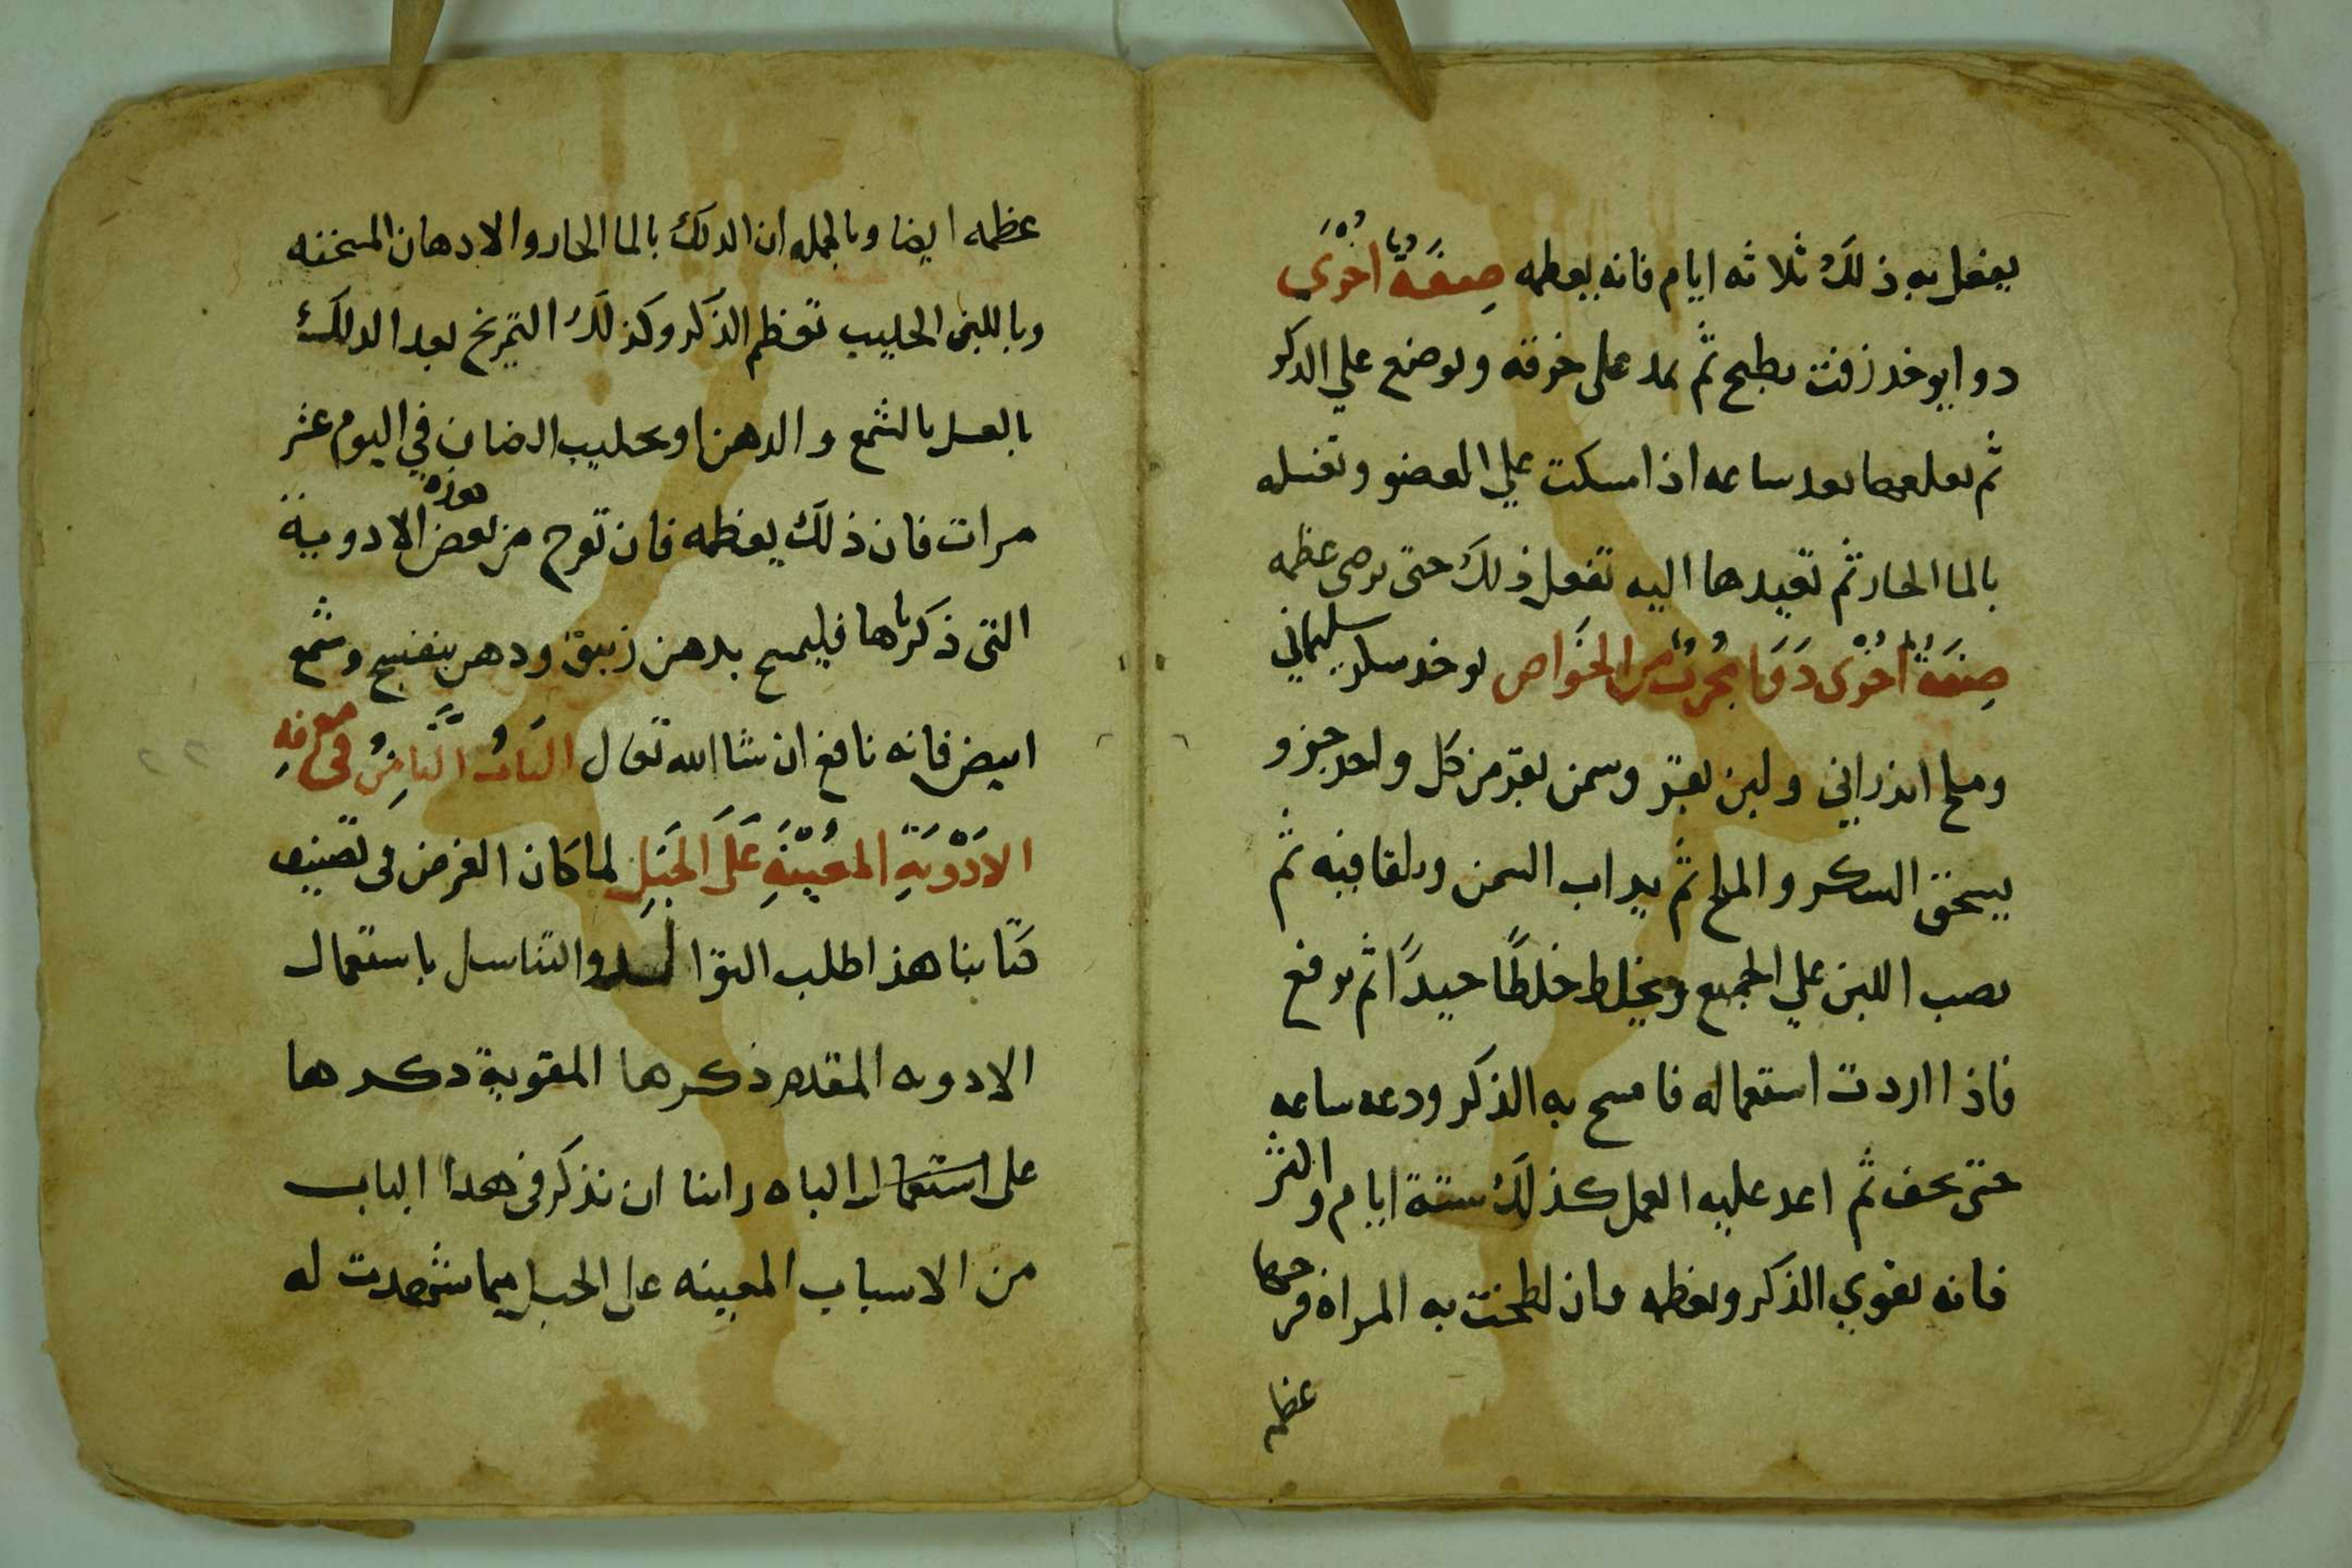 يفعل به ذلك ثلاثه ايام فانه يعظمه صِفَةٌ اخْرَى
دوا يوخد زفت يطبخ ثم يمد على خرقه ويوضع علي الدكر
ثم تعلعها بعد ساعه اذا امسكت علي العضو وتغسله
بالما الحار ثم تعيدها اليه تفعل ذلك حتى ترضى عظمه
صِفَةٌ اخْرَى دَوَا مجرب من الخَواص يوخد سكر سليماني
وملح اندراني ولبن بقر وسمن بقر من كل واحد جزو
يسحق السكر والملح ثم يداب السمن ويلقا فيه ثم
يصب اللبن علي الجميع ويخلط خلطًا جيدًا ثم يرفع
فاذا اردت استعماله فامسح به الذكر ودعه ساعه
حتى يجف ثم اعد عليه العمل كذلك ستة ايام واكثر
فانه يقوي الذكر ويعظمه فان لطخت به المراه فرجها
عظمه
عظمه ايضا وبالجمله ان الدلك بالما الحار والادهان المسخنه
وباللبن الحليب تعظم الذكر وكذلك التمريخ بعد الدلك
بالعسل بالشمع والدهن او بحليب الضان في اليوم عشر
مرات فان ذلك يعظمه فان تقرح من بعض هذه الادوية
التى ذكرناها فليمسح بدهن زيبق ودهن بنفسج وشمع
ابيض فانه نافع ان شا الله تعال البَابُ الثَّامِنُ فى معرفةِ
الادْوِيَةِ المعِينَةِ عَلَى الحَبَلِ لما كان الغرض فى تصنيف
كتابنا هذا طلب التوالد والتناسل باستعمال
الادويه المقدم ذكرها المقوية ذكرها
على استعمال الباه راينا ان نذكر فى هدا الباب
من الاسباب المعينه على الحبل مما شهدت له